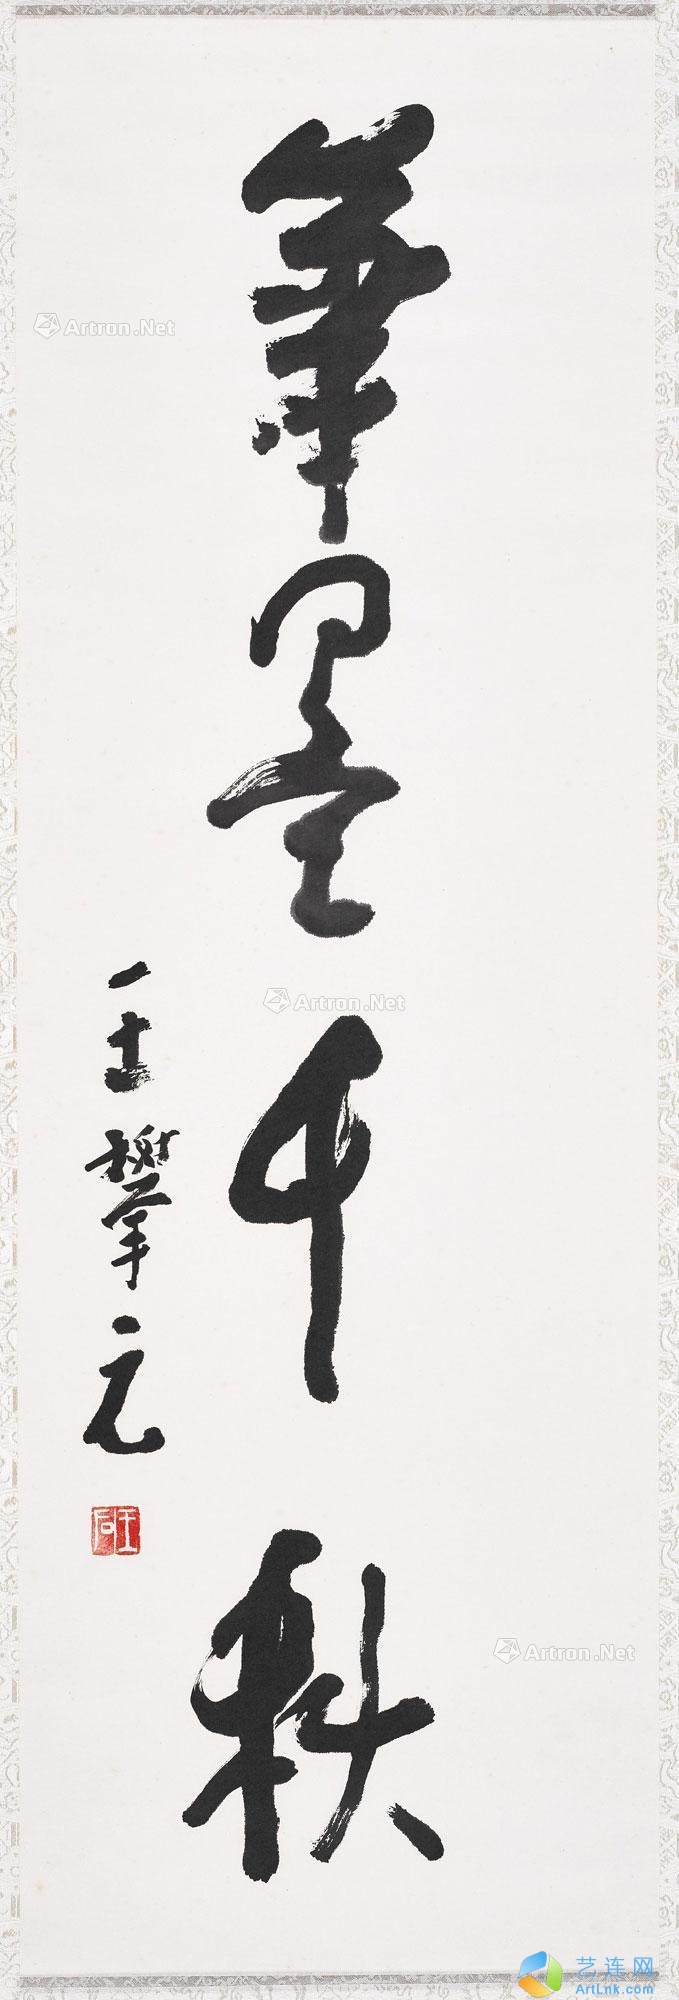 筆墨千秋
王攀元
王
Artron.Net
Artron.Net
Artron.Net
艺连网
ArtLnk.com